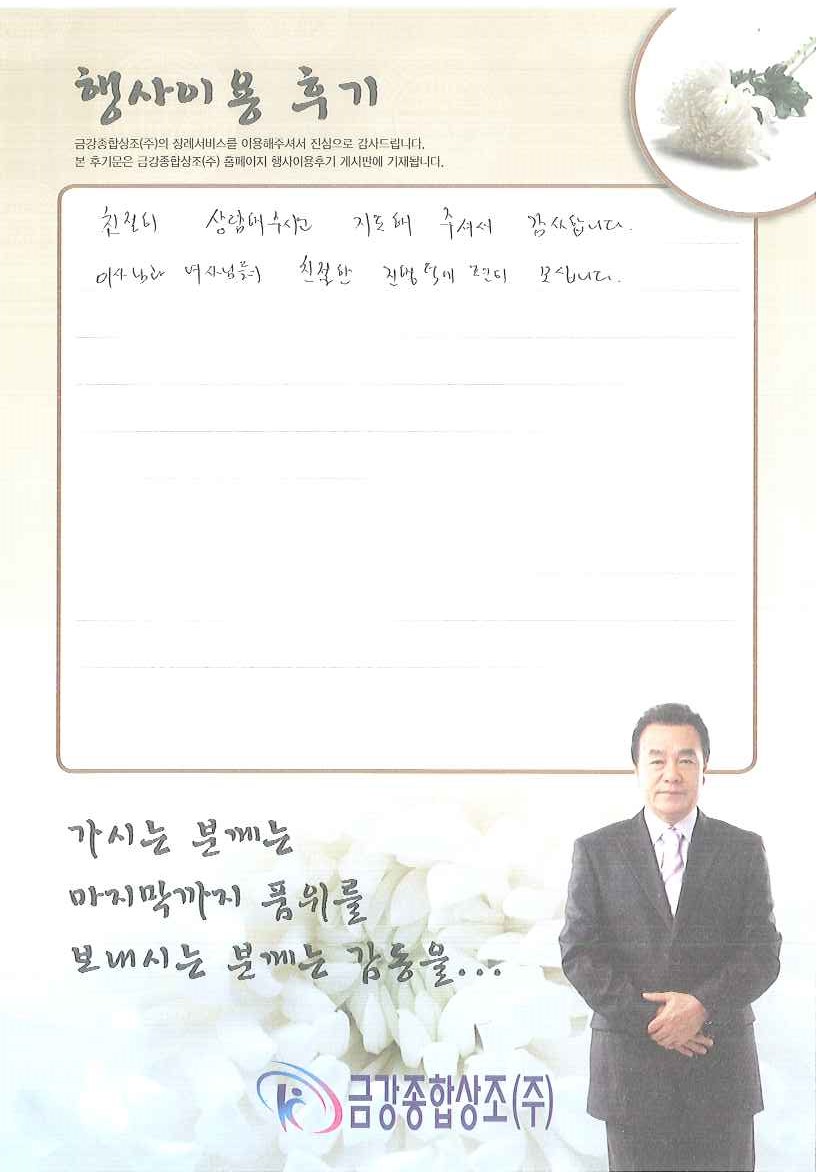 행사이용 후기
금강종합상조(주)의 장례서비스를 이용해주셔서 진심으로 감사드립니다.
본 후기문은 금강종합상조(주) 홈페이지 행사이용후기 게시판에 기재됩니다.
친절히 상담해주시고 지도해 주셔서 감사합니다.
이사님과 여사님들의 친절한 진행 덕에 모십니다.
가시는 분께는
마지막까지 품위를
보내시는 분께는 감동을...
금강종합상조(주)